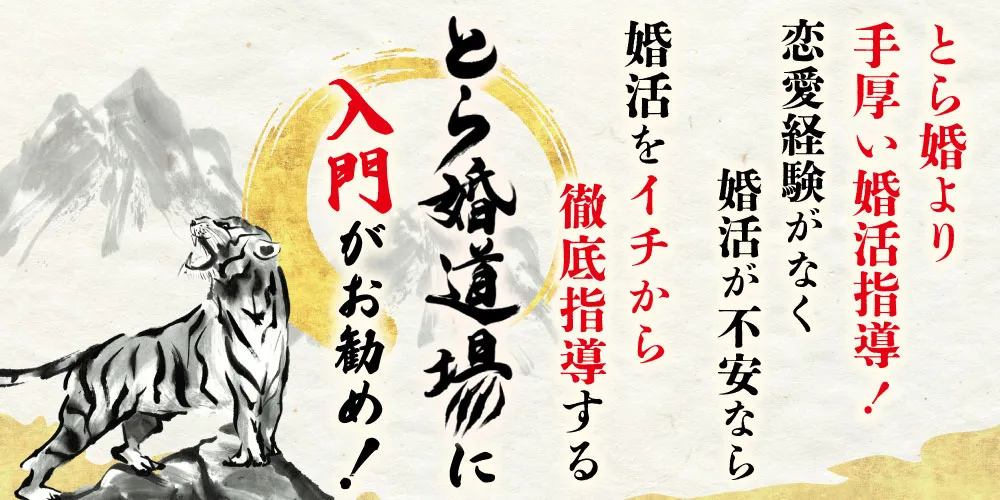 とら婚より
手厚い婚活指導！
恋愛経験がなく
婚活が不安なら
婚活をイチから
徹底指導する
とら婚道場に
入門がお勧め！